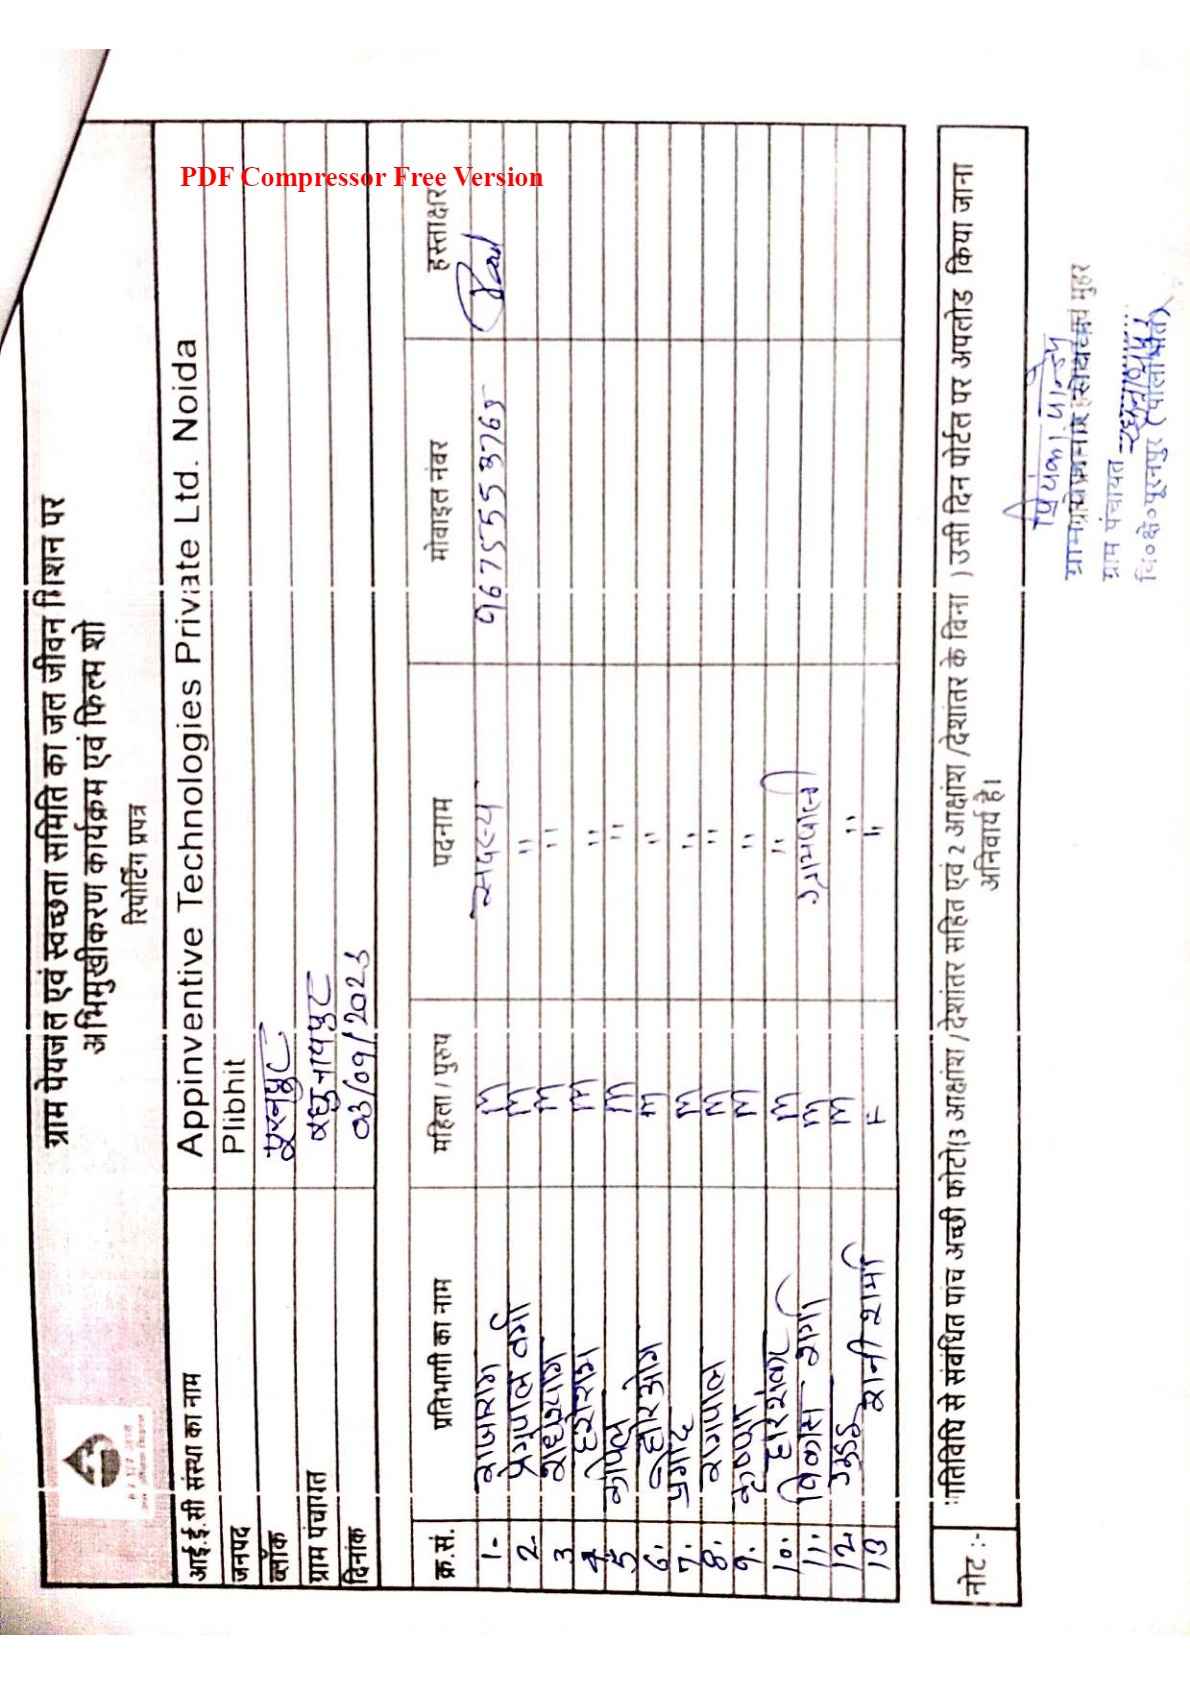 PDF Compressor Free Version
ग्राम पेयजल एवं स्वच्छता समिति का जल जीवन मिशन पर
अभिमुखीकरण कार्यक्रम एवं फिल्म शो
रिपोर्टिंग प्रपत्र
आई.ई.सी संस्था का नाम Appinventive Technologies Private Ltd. Noida
जनपद Plibhit
ब्लॉक पूरनपुर
ग्राम पंचायत रघुनाथपुर
दिनांक 03/09/2023
क्र.सं. प्रतिभागी का नाम महिला / पुरुष पदनाम मोबाइल नंबर हस्ताक्षर
1- राजाराम M सदस्य 9675553765
2. वर्मा M "
3 राधेश्याम M "
4 M "
5 M "
6. M "
7. प्रमोद M "
8. रामपाल M "
9. कृष्णा M "
10. हरिशंकर M "
11. विकास शर्मा M ग्रामवासी
12 M "
13 रानी शर्मा F "
नोट :- गतिविधि से संबंधित पांच अच्छी फोटो(3 आक्षांश / देशांतर सहित एवं 2 आक्षांश /देशांतर के बिना ) उसी दिन पोर्टल पर अपलोड किया जाना
अनिवार्य है।
प्रियंका पान्डेय
ग्राम पंचायत रघुनाथपुर
वि०क्षे०पूरनपुर (पीलीभीत)